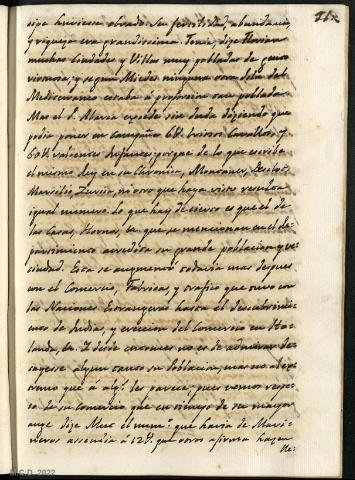 cipe huviesse obrado. Su fertilidad, abundancia,
y riqueza era grandissima. Tenia, dize
muchas Ciudades y Villas muy pobladas de gente
y segun Miedes ninguna otra Isla del
Mediterraneo estaba á proporcion tan poblada.
Mas el P. Maria excede sin duda diziendo que
podia poner en Campaña Cavallos, y
valientes Infantes; porque de lo que escribe
el mismo Rey en su Coronica, Montaner, Desclot,
Marsilio, Zurita, ni otro que haya visto resulta
igual numero. Lo que hay de cierto es que el de
las Casas, Hornos, &c. que se mencionan en el
partimiento acredita su grande poblacion y
Esta se augmentó todavia mas despues
con el Comercio, Fabricas, y trafico que tuvo con
las Naciones Estrangeras hasta el descubrimi-
ento de Indias, y ereccion del Comercio en Ho-
landa, &c. Y desde entonces no es de admirar
algun tanto su Poblacion, mas no al
tremo que á algs. les parece; pues vemos
to de su comercio que en tiempo de su mayor
auge dize Mut el num.º que havia de Mari-
neros ascendia á que otros afirman hazen